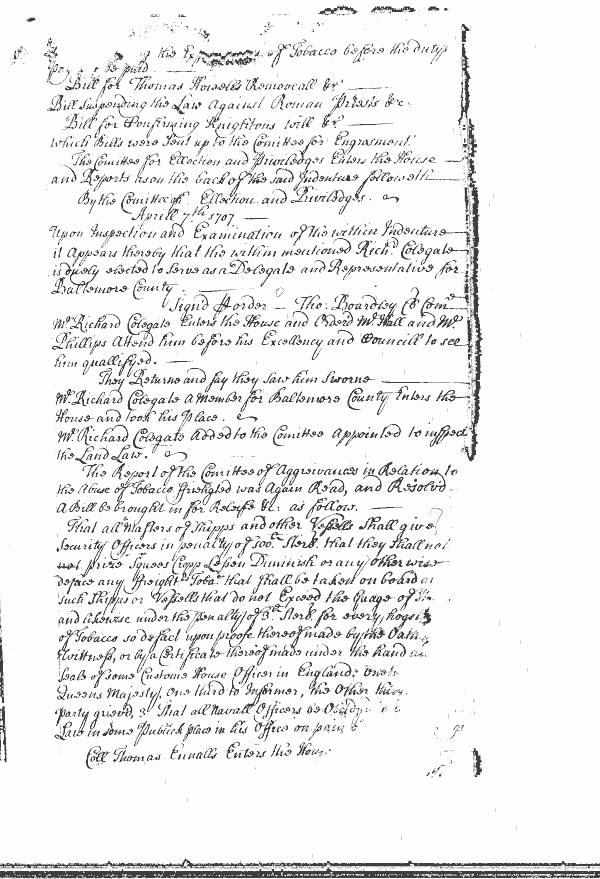 the of Tobacco before the duty
be paid
Bill for Thomas Howells Removeall &c
Bill suspending the Law Against Roman Priests &c.
Bill for Confirming Knightons will &c
which Bills were Sent up to the Comittee for Engrosment.
The Comittee for Ellection and Priviledges Enters the House
and Reports upon the back of the said Indenture followeth
By the Comittee of Ellection and Priviledges.
Aprill 7th 1707
Upon Inspection and Examination of the within Indenture
it Appears thereby that the within mentioned Richd Colegate
is duely elected to serve as a Delegate and Representative for
Baltemore County
Signd P order Tho: Boardley Cl Com
Mr Richard Colegate Enters the House and Orderd Mr Hall and Mr
Phillips Attend him before his Excellency and Councill to see
him quallifyed.
They Returne and say they saw him Sworne
Mr Richard Colegate a Member for Baltemore County Enters the
House and took his Place.
Mr Richard Colegate Added to the Comittee Appointed to inspect
the Land Law.
The Report of the Comittee of Aggreivances in Relation to
the Abuse of Tobacco freighted was Again Read, and Resolvd
A Bill be brought in for Releife &c as follow.
That all Masters of Shipps and other Vessells Shall give
Security Officers in penalty of 500 Sterl. that they shall not
not prize Squees Cropp Lessen Diminish or any other wise
deface any freight Tobo that shall be taken on board as
such Shipps or Vessells that do not Exceed the Guage of
and likewise under the penalty of 3 Sterl for every hogs
of Tobacco so defact upon proofe thereof made by the Oath
Wittness, or by a Certificate thereof made under the hand
Seale of some Custome House Officer in England; one
Queens Majesty, One third to Informer, the Other third
party grievd, 3 That all Navall Officers be
Law in some Publick place in his Office on pain
Coll Thomas Ennalls Enters the House